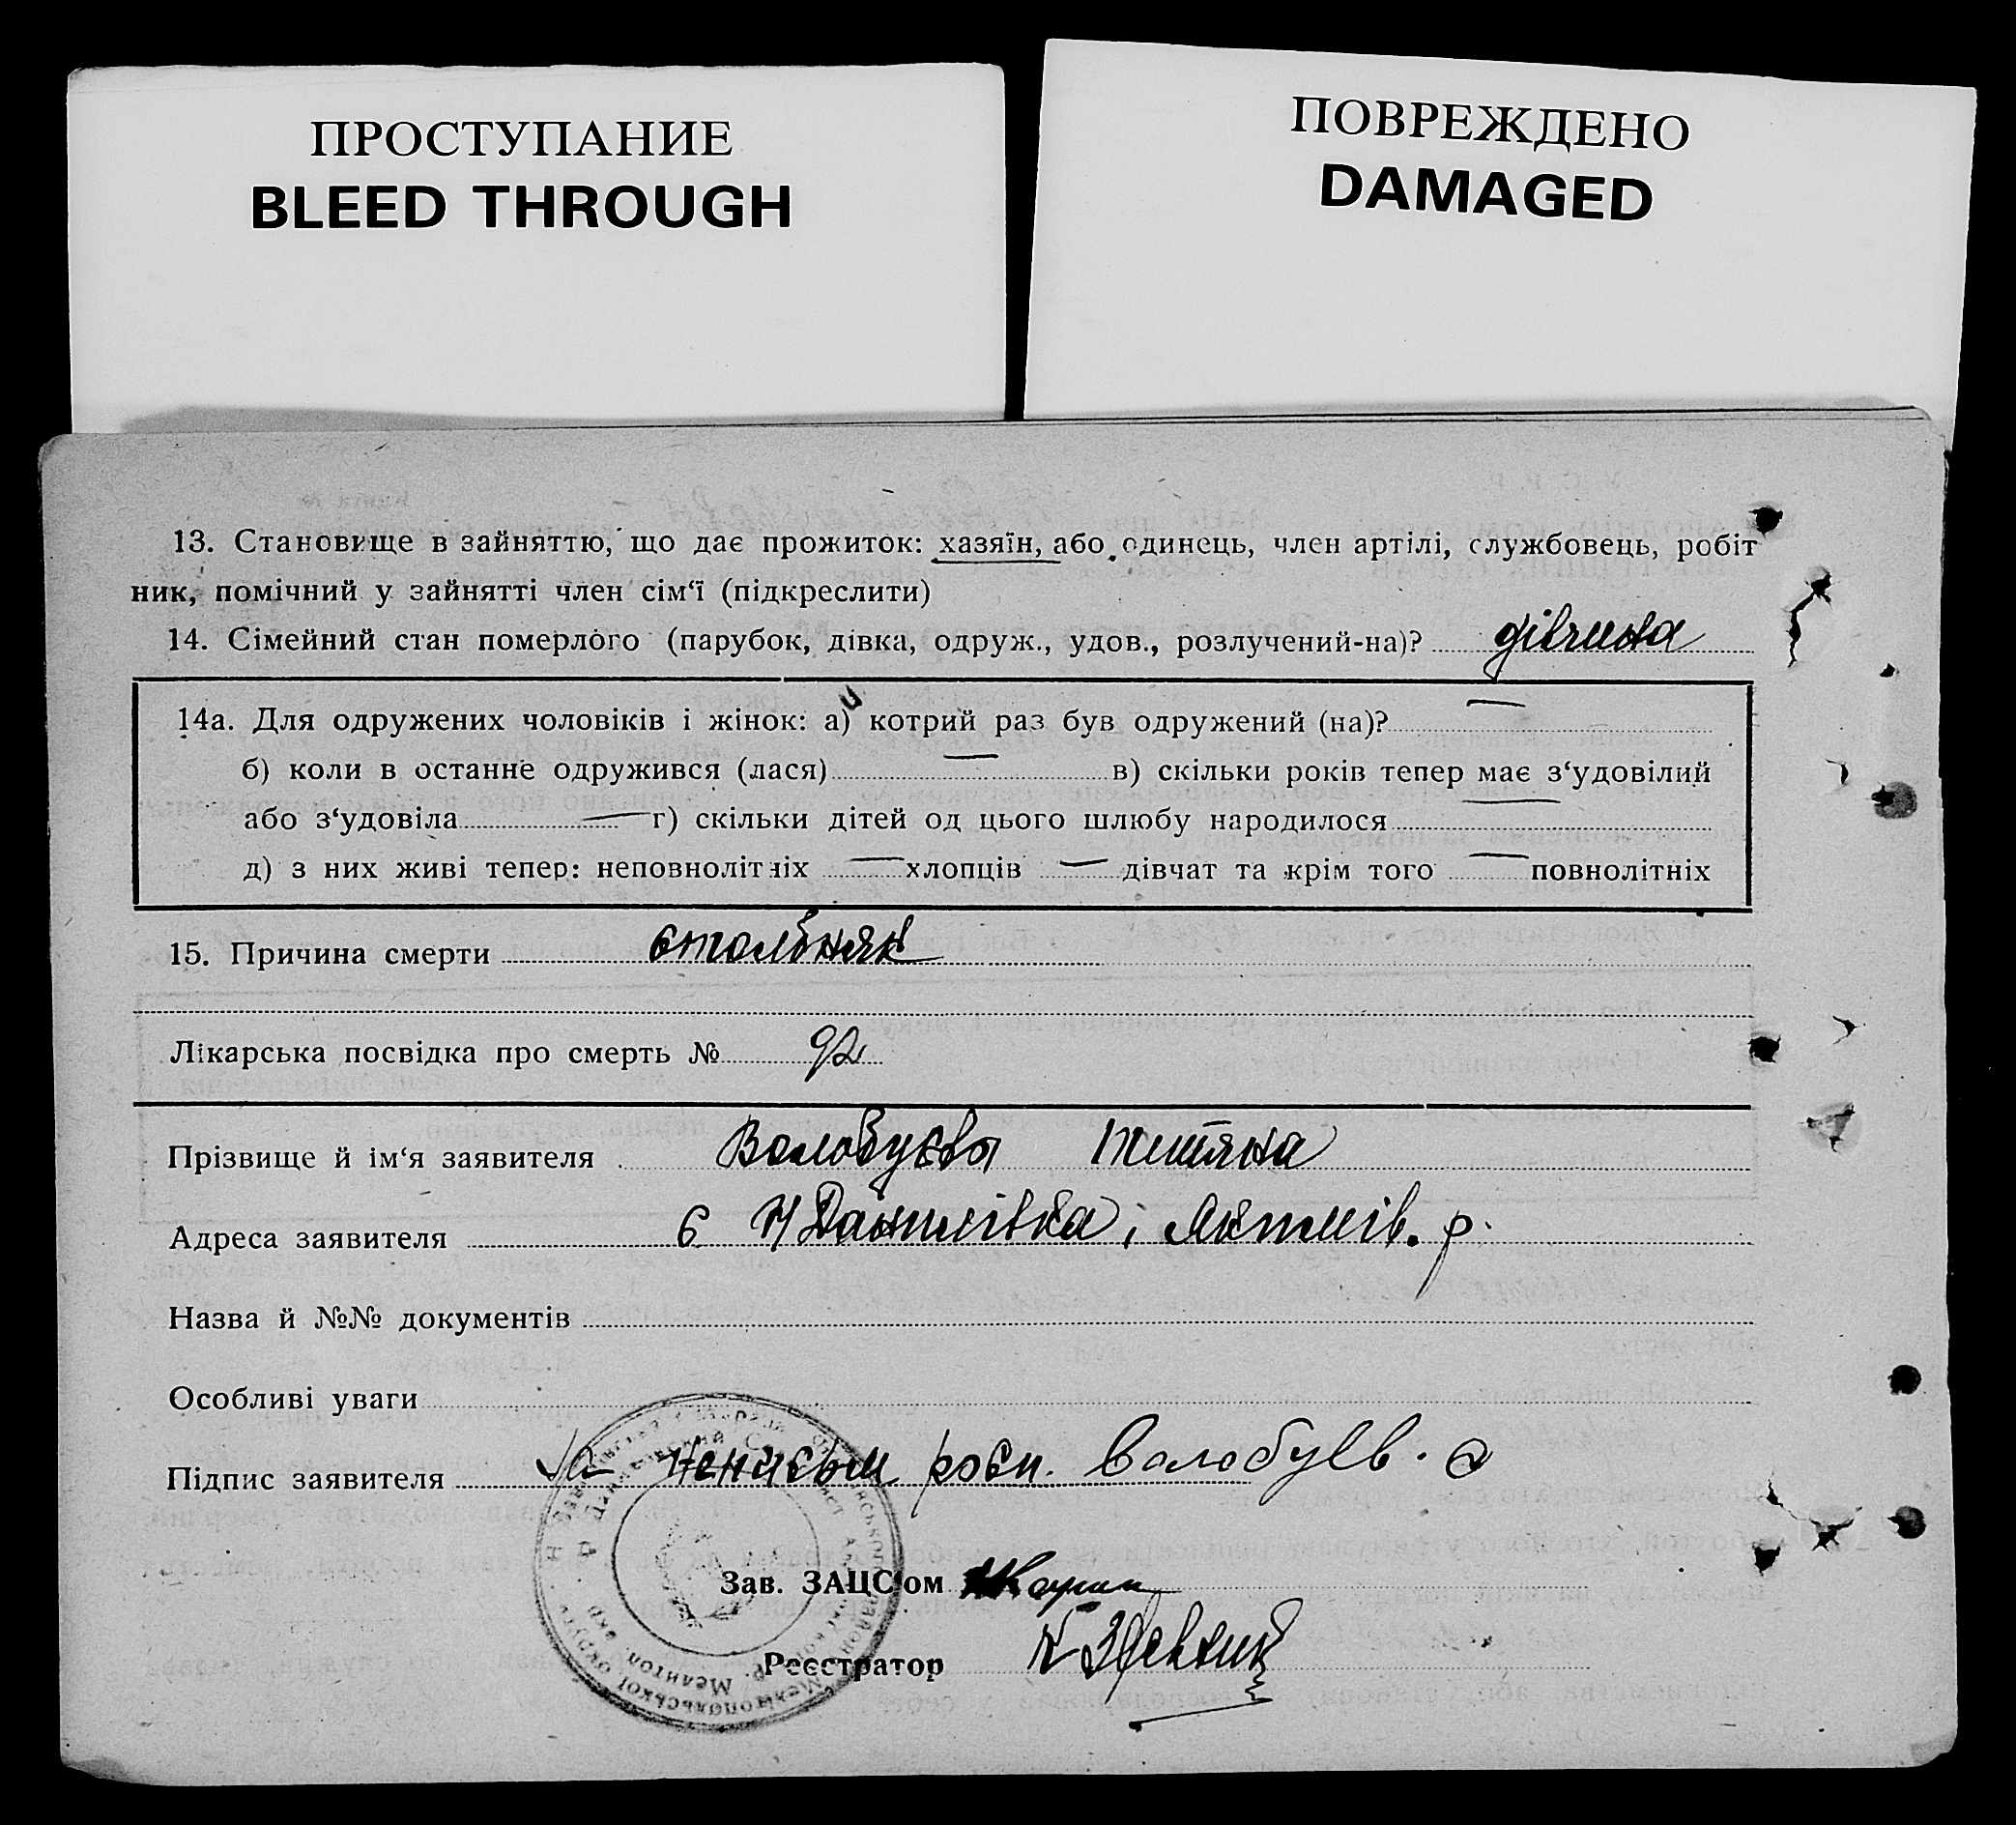 ПРОСТУПАНИЕ
BLEED THROUGH
ПОВРЕЖДЕНО
DAMAGED
13. Становище в зайняттю, що дає прожиток: хазяїн, або одинець, член артілі, службовець, робіт
ник, помічний у зайнятті член сім‘ї (підкреслити)
14. Сімейний стан померлого (парубок, дівка, одруж., удов., розлучений-на)? дівчина
14а. Для одружених чоловіків і жінок: а) котрий раз був одружений (на)? —
б) коли в останнє одружився (лася) — в) скільки років тепер має з‘удовілий
або з‘удовіла — г) скільки дітей од цього шлюбу народилося —
д) з них живі тепер: неповнолітніх — хлопців — дівчат та крім того — повнолітніх
15. Причина смерти столбняк
Лікарська посвідка про смерть № 92
Прізвище й ім‘я заявителя Волобуєва Тетяна
Адреса заявителя с. Н Данилівка, Якимів. р.
Назва й №№ документів
Особливі уваги
Підпис заявителя за неписьм росп. Волобуєв.
Зав. ЗАЦС‘ом
Реєстратор